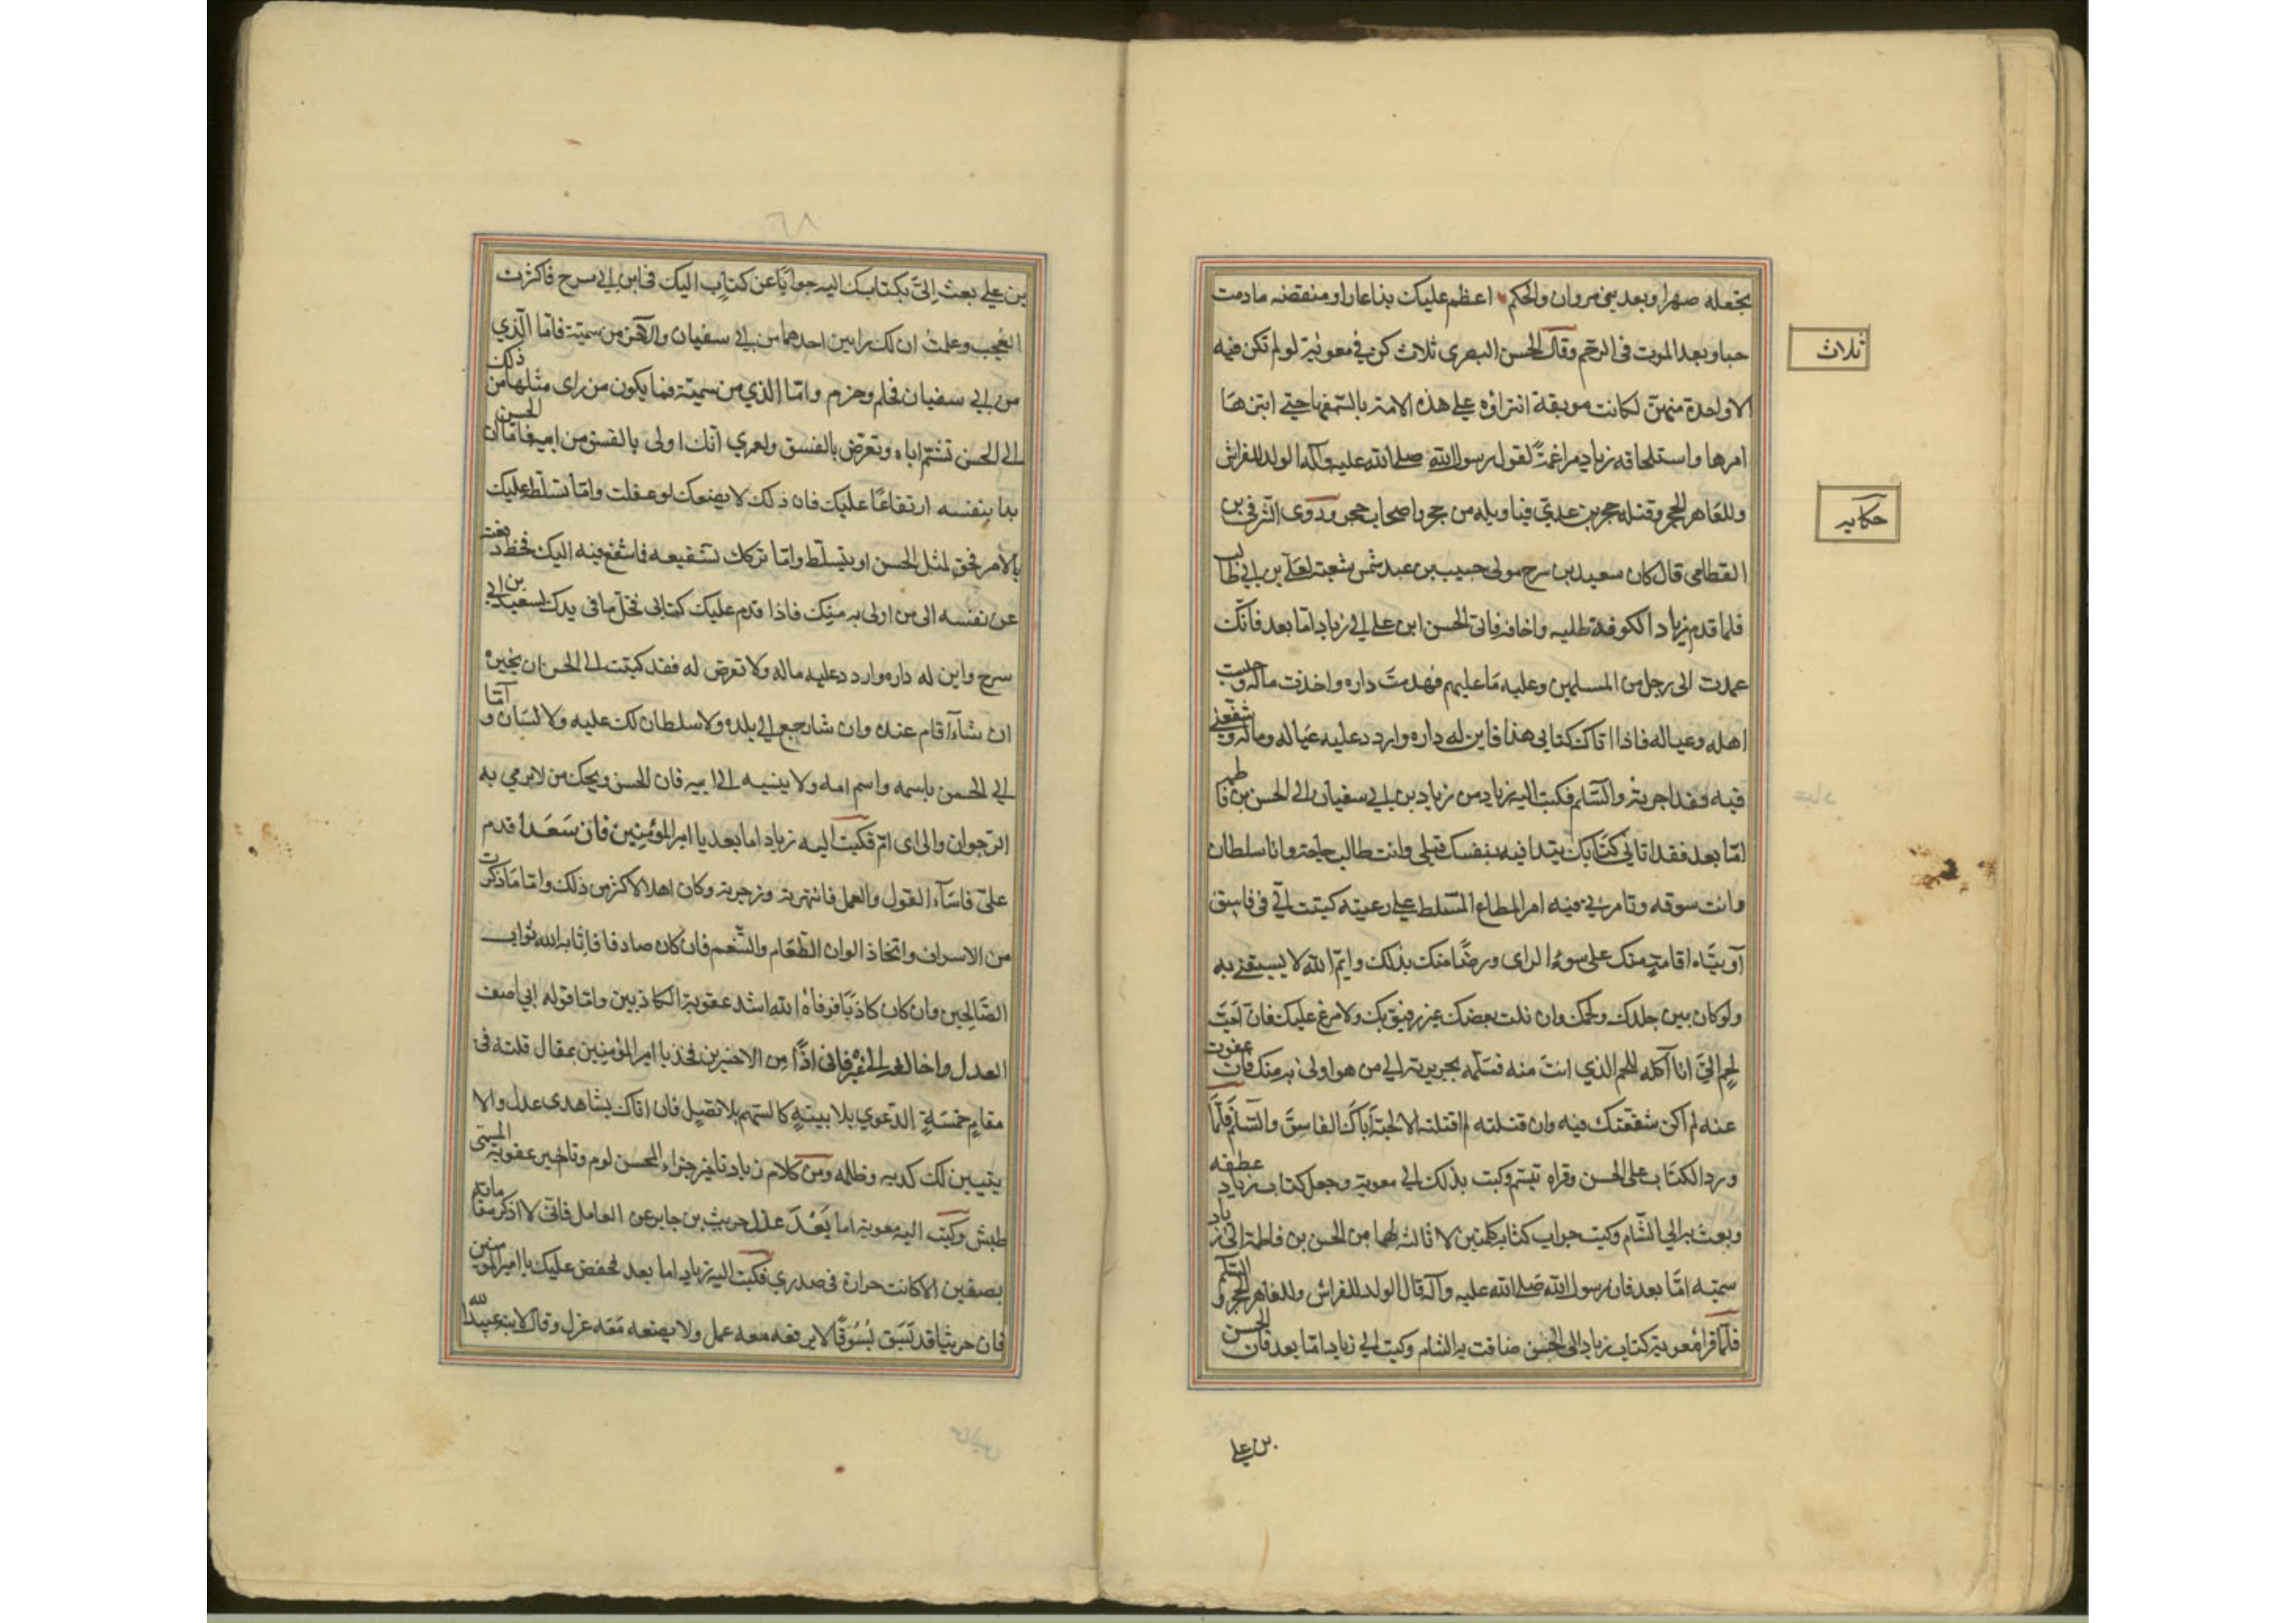 بجعله صهرا وبعد بنى مروان والحكم اعظم عليك بذا عارا ومنقصه ما دمت
حيا وبعد الموت فى الرحم وقال الحسن البصرى ثلاث كن في معوية لو لم تكن فيه
الا واحدة منهن لكانت موبقة انتزاؤه على هذه الامة بالسفهاء حتى ابتزها
امرها واستلحاقه زياد مراغمةً لقول رسول الله صلى الله عليه وآله الولد للفراش
وللعاهر الحجر وقتله حجر بن عدي فيا ويله من حجر واصحاب حجر وروى الشرفى بن
القطامى قال كان سعيد بن سرح مولى حبيب بن عبد شمس شيعة لعلى بن ابي طالب
فلما قدم زياد الكوفة طلبه واخافه فاتى الحسن ابن على الى زياد اما بعد فانّك
عمدت الى رجل من المسلمين وعليه ما عليهم فهدمتَ داره واخذت ماله وحبست
اهله وعياله فاذا اتاك كتابى هذا فابن له داره واردد عليه عياله وماله وشفّعنى
فيه فقد اجرته والسّلم فكتب اليه زياد من زياد بن ابي سفيان الى الحسن بن فاطمه
امّا بعد فقد اتانى كتابك تبتدا فيه بنفسك قبلى وانت طالب حاجة وانا سلطان
وانت سوقه وتامرنى فيه امر المطاع المتسلط على رعيته كتبت الىّ فى فاسق
آويته اقامة منك على سوء الراى ورضًا منك بذلك وايم الله لا يسبقنى به
ولو كان بين جلدك ولحمك وان نلت بعضك غير رفيق بك ولا مرع عليك فان احبّ
لحمٍ الىّ انا آكله للحم الذي انت منه فسلمه بجريرته الى من هو اولى به منك فان عفوت
عنه لم اكن شفعتك فيه وان قتلته لم اقتله الا لحبّه اباك الفاسق والسّلم فلمّا
ورد الكتاب على الحسن وقراه تبسّم وكتب بذلك الى معوية وجعل كتاب زياد عطفه
وبعث به الى الشام وكتب جواب كتابه كلمتين لا ثالث لهما من الحسن بن فاطمة الى زياد
سميّه امّا بعد فان رسول الله صلى الله عليه وآله قال الولد للفراش وللعاهر الحجر والسلم
فلمّا قرا معوية كتاب زياد الى الحسن ضاقت به الشام وكتب الى زياد امّا بعد فان الحسن
بن على
ثلاث
حكايه
٦٨
بن على بعث الىّ بكتابك اليه جوابًا عن كتابه اليك فى ابن ابى سرح فاكثرت
العجب وعلمتُ ان لك رايين احدهما من ابى سفيان والآخر من سميّة فامّا الّذي
من ابى سفيان فحلم وحزم وامّا الذي من سميّة فما يكون من راى مثلها من ذلك
الى الحسن تشتم اباه وتعرّض بالفسق ولعمري انّك اولى بالفسق من ابيه فامّا ان الحسن
بدا بنفسه ارتفاعًا عليك فان ذلك لا يضعك لو عقلت وامّا تسلّطه عليك
بالامر فحق لمثل الحسن ان يتسلّط وامّا تركك تشفيعه فيما شفع فيه اليك فحظ دفعته
عن نفسه الى من اولى به منك فاذا قدم عليك كتابى فخلّ ما فى يدك لسعيد بن ابى
سرح وابن له داره واردد عليه ماله ولا تعرض له فقد كتبت الى الحسن ان يخيره
ان شاء اقام عنده وان شا رجع الى بلده ولا سلطان لك عليه ولا لسان وامّا
الى الحسن باسمه واسم امه ولا ينسبه الى ابيه فان الحسن ويحك من لا يرمي به
الرجوان والى اى امّ فكتب اليه زياد اما بعد يا امير المؤمنين فان سَعَدا قدم
علىّ فاسآء القول والعمل فانتهرته وزجرته وكان اهلا لاكثر من ذلك وامّا ما ذكرت
من الاسراف واتخاذ الوان الطّعام والتّنعم فان كان صادقا فاثابه الله ثواب
الصّالحين وان كان كاذبًا فوقاه الله اشد عقوبة الكاذبين وامّا قوله انى اصف
العدل واخالفه الى غيره فانى اذًا من الاخسرين فخذ يا امير المؤمنين بمقال قلته فى
مقامٍ الدّعوي بلا بينةٍ كالسّهم بلا نصلٍ فان اتاك بشاهدى عدل والا
يتبيين لك كذبه وظلمه ومن كلام زياد تاخير جزاء المحسن لوم وتاخير عقوبة المسئ
طيش وكتب اليه معوية اما بعدَ عدل حريث بن جابر عن العامل فانّى لا اذكر مقامه
بصفين الا كانت حرارة فى صدري فكتب اليه زياد اما بعد فخفض عليك يا امير المومنين
فان حريثا قد بَسَق بُسُوقًا لا يرفعه معه عمل ولا يضعه مَعَه عزل وقال لابنه عبيد الله